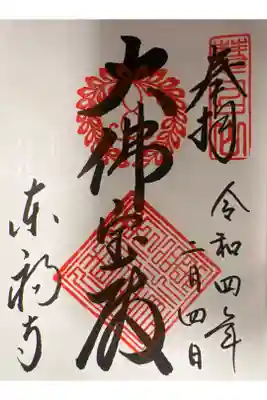 奉拝
令和四年
二月四日
大佛宝殿
东福寺